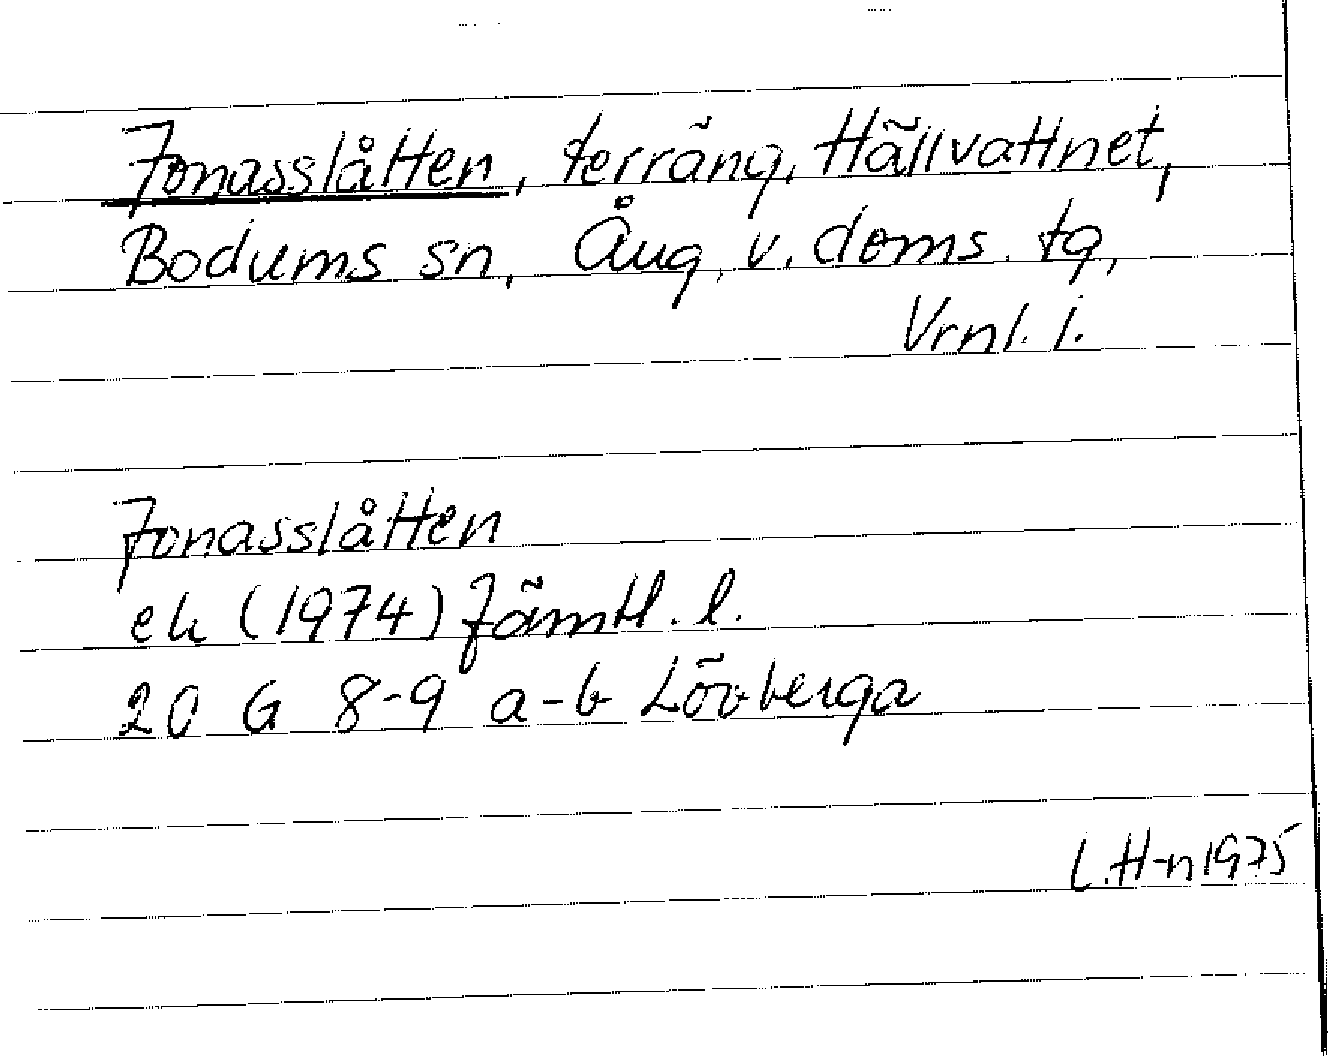 Jonasslåtten, terräng, Hällvattnet,
Bodums sn, Ång. v. doms. tg,
Vrnl. l.
Jonasslåtten
ek (1974) Jämtl. l.
20 G 8-9 a-b Lövberga
L.H-n 1975